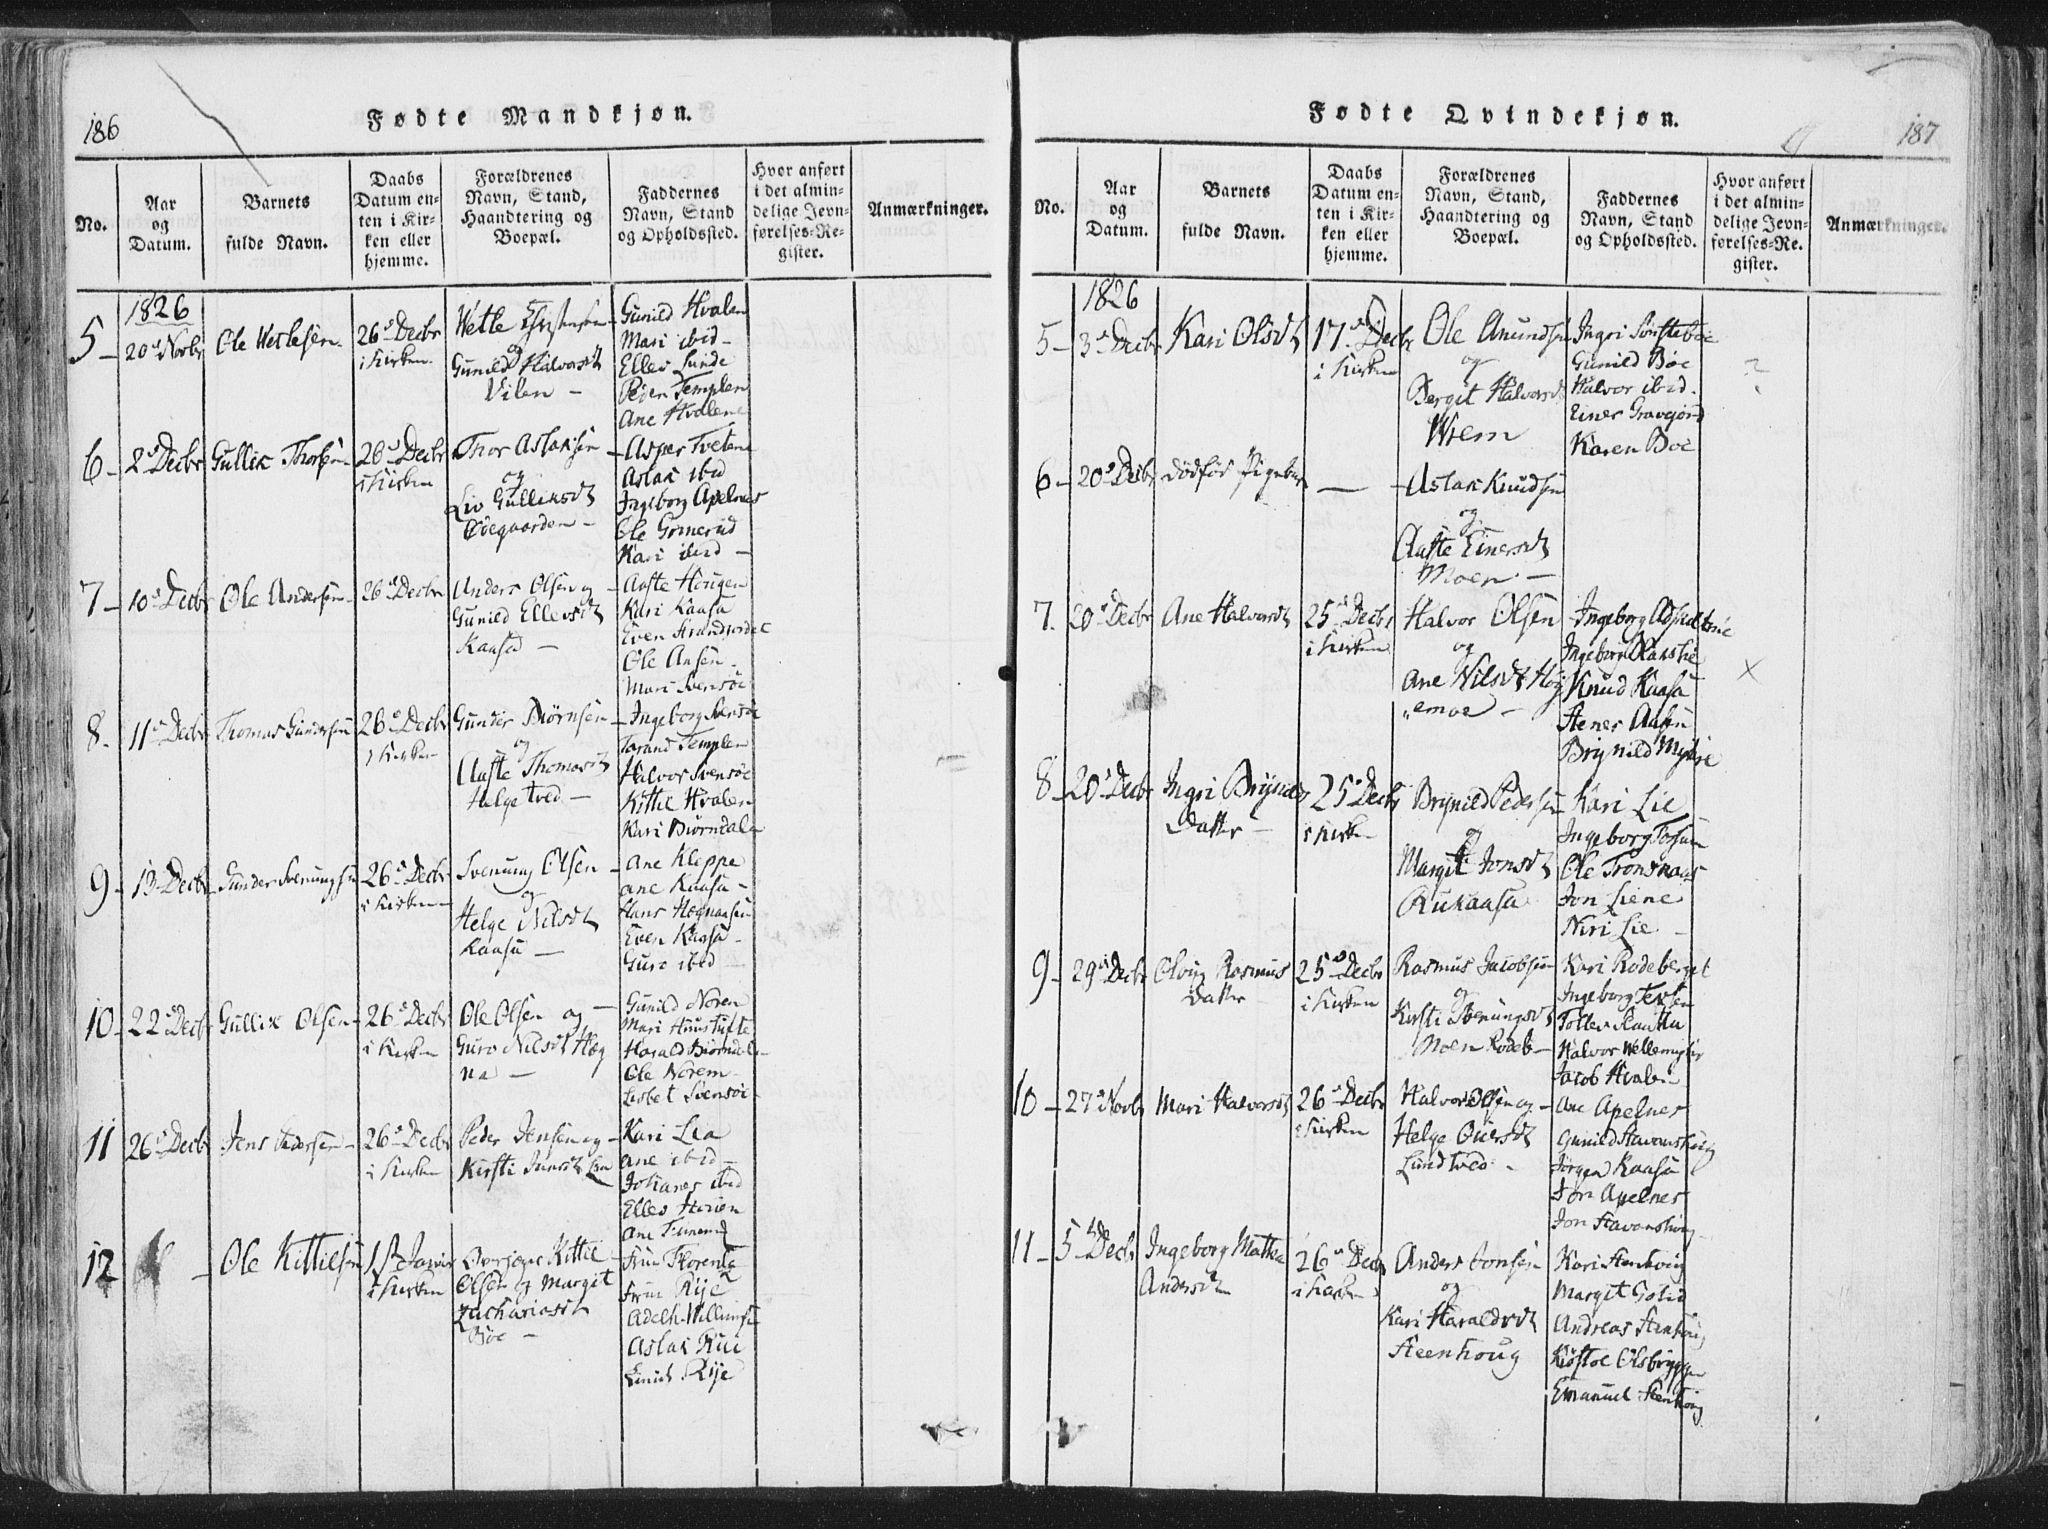 186
Fødte Mandkjøn.
No.
Aar
og
Datum.
Barnets
fulde Navn.
Daabs
Datum en-
ten i Kir-
ken eller
hjemme.
Forældrenes
Navn, Stand,
Haandtering og
Boepæl.
Faddernes
Navn, Stand
og Opholdssted.
Hvor anført
i det almin-
delige Jevn-
førelses-Re-
gister.
Anmærkninger.
1826
5 -
20d Novbr
Ole Wetlesen
26d Decbr
i Kirken
Wetle
og
Gunild Halvorsdt
Vilen -
Gunild Hvalen
Mari ibid -
Ellev Lunde
Peder Templen
Ane Hvalene
6 -
2d Decbr
Gullik Thorsen
26d Decbr
i Kirken
Thor Aslaksen
og
Liv Gulliksdt
Odegaarden -
Asper Tvetene
Aslak ibid
Ingeborg Apelnes
Ole Gomerud
Kari ibid -
7 -
10d Decbr
Ole Andersen
26d Decbr
Anders Olsen og
Gunild Ellevsdt
Kaasa -
Aaste Hougen
Kari Kaasa
Even
Ole Ansen -
Mari Svensøe
8 -
11d Decbr
Thomas Gundersen
26d Decbr
i Kirken
Gunder Biørnsen
og
Aaste Thomasdt
Helgetved -
Ingeborg Svensøe
Tarand Templen
Halvor Svensøe
Kittil Hvalen
Kari Biørndalen
9 -
13 Decbr
Gunder Svenungsen
26d Decbr
i Kirken
Svenung Olsen
og
Helge Nilsdt
Kaasa -
Ane Kleppe
Ane Kaasa -
Hans Hegnaasen
Even Kaasa -
Guro ibid
10 -
22d Decbr
Gullik Olsen
26d Decbr
i Kirken
Ole Olsen og -
Guro Nilsdt Heg
na -
Gunild Noren
Mari Huustufte
Harald Biørndalen
Ole Norem
Lisbet Svensøe
11
26d Decbr
Jens Pedersen
26d Decbr
i Kirken
Peder Jensen og
Kirsti Jansdt Lia
Kari Lia
Ane ibid -
Johanes ibid
Ellev
Ane
12
Ole Kittilsen
1st Janr
i Kirken
Kittil
Olsen og Margit
Zachariasdt
Bøe -
Frue Florentz
Frue Rije
Adelh. Willumsen
Aslak Rue
Rije
187
Fødte Qvindekjøn.
No.
Aar
og
Datum.
Barnets
fulde Navn.
Daabs
Datum en-
ten i Kir-
ken eller
hjemme.
Forældrenes
Navn, Stand,
Haandtering og
Boepæl.
Faddernes
Navn, Stand
og Opholdssted.
Hvor anført
i det almin-
delige Jevn-
førelses-Re-
gister.
Anmærkninger.
1826
5 -
3d Decbr
Kari Olsdt
17d Decbr
i Kirken
Ole Anundsen
og
Bergit Halvorsdt
Wrem
Ingri
Gunild Bøe
Halvor ibid.
Einer Gravejord
Karen Boe
?
6 -
20d Decbr
dødfød Pigebarn
—
Aslak Knudsen
og
Aaste Einersdt
Moen -
7.
20d Decbr
Ane Halvorsdt
25d Decbr
i Kirken
Halvor Olsen
og
Ane Nilsdt Høy
"emoe -
Ingeborg
Ingeborg
Knud Kaasa
Stener Aasen
Brynild Myhre
x
8 -
20d Decbr
Ingri Brynilds
Datter -
25d Decbr
i Kirken
Brynild Pedersen
og
Margit Jonsdt
Rukaasa
Kari Lie
Ingeborg Fossum
Ole Tronsnaas
Jon Liene
Niri Lie -
9 -
29d Decbr
Rasmus
Datter -
25d Decbr
i Kirken
Rasmus Jacobsen
og
Kirsti Svenungsdt
Moen Rodeb -
Kari Rodeberget
Ingeborg
Tollev
Halvor
Jacob Hvalen
10 -
27d Novbr
Mari Halvorsdt
26d Decbr
i Kirken
Halvor Olsen og -
Helge Oversdt
Lundtved -
Ane Apelnes
Gunild
Jørgen Kaasa
Jon Apelnes
Jon
11 -
5d Decbr
Ingeborg Mathea
Andersdt
26d Decbr
i Kirken
Anders Jonsen
og
Kari Haraldsdt
Steenhoug
Kari Steenhoug
Margit Golid
Andreas Steenhoug
Kiøstol Olsbryggen
Emanuel Steenhoug